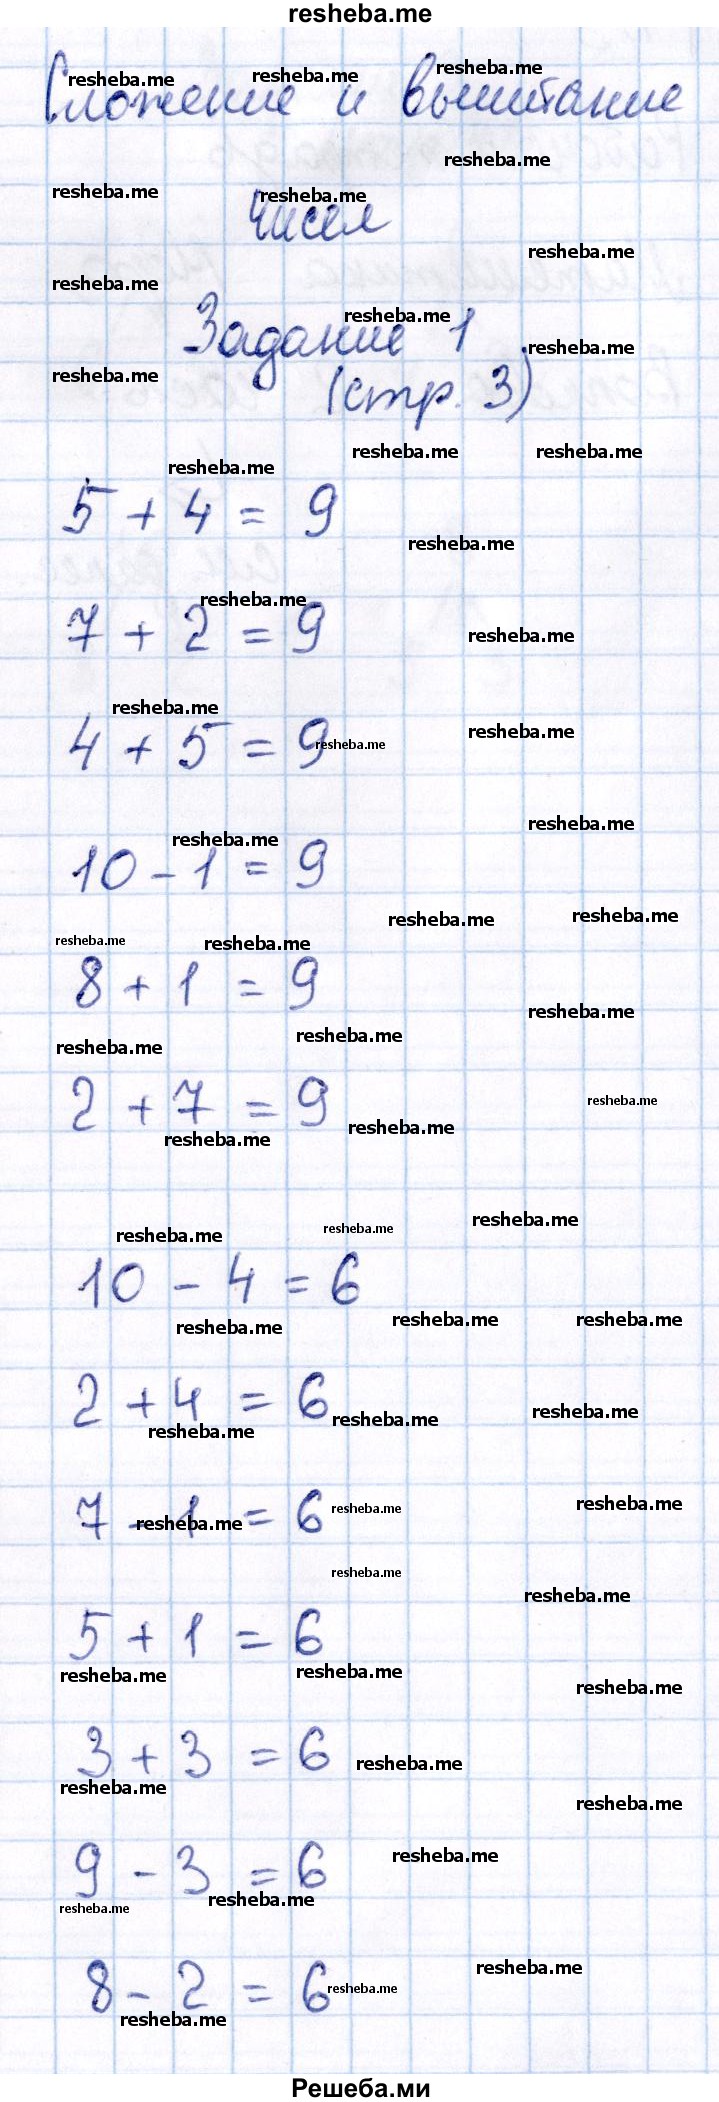 resheba.me
Сложение и вычитание
чисел
Задание 1
(стр. 3)
5 + 4 = 9
7 + 2 = 9
4 + 5 = 9
10 - 1 = 9
8 + 1 = 9
2 + 7 = 9
10 - 4 = 6
2 + 4 = 6
7 - 1 = 6
5 + 1 = 6
3 + 3 = 6
9 - 3 = 6
8 - 2 = 6
Решеба.ми